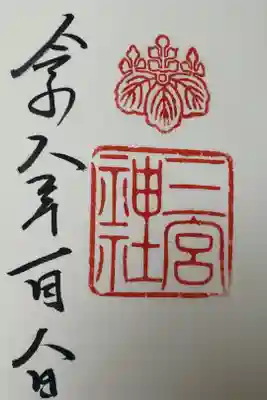 二宮神社
令和八年一月八日